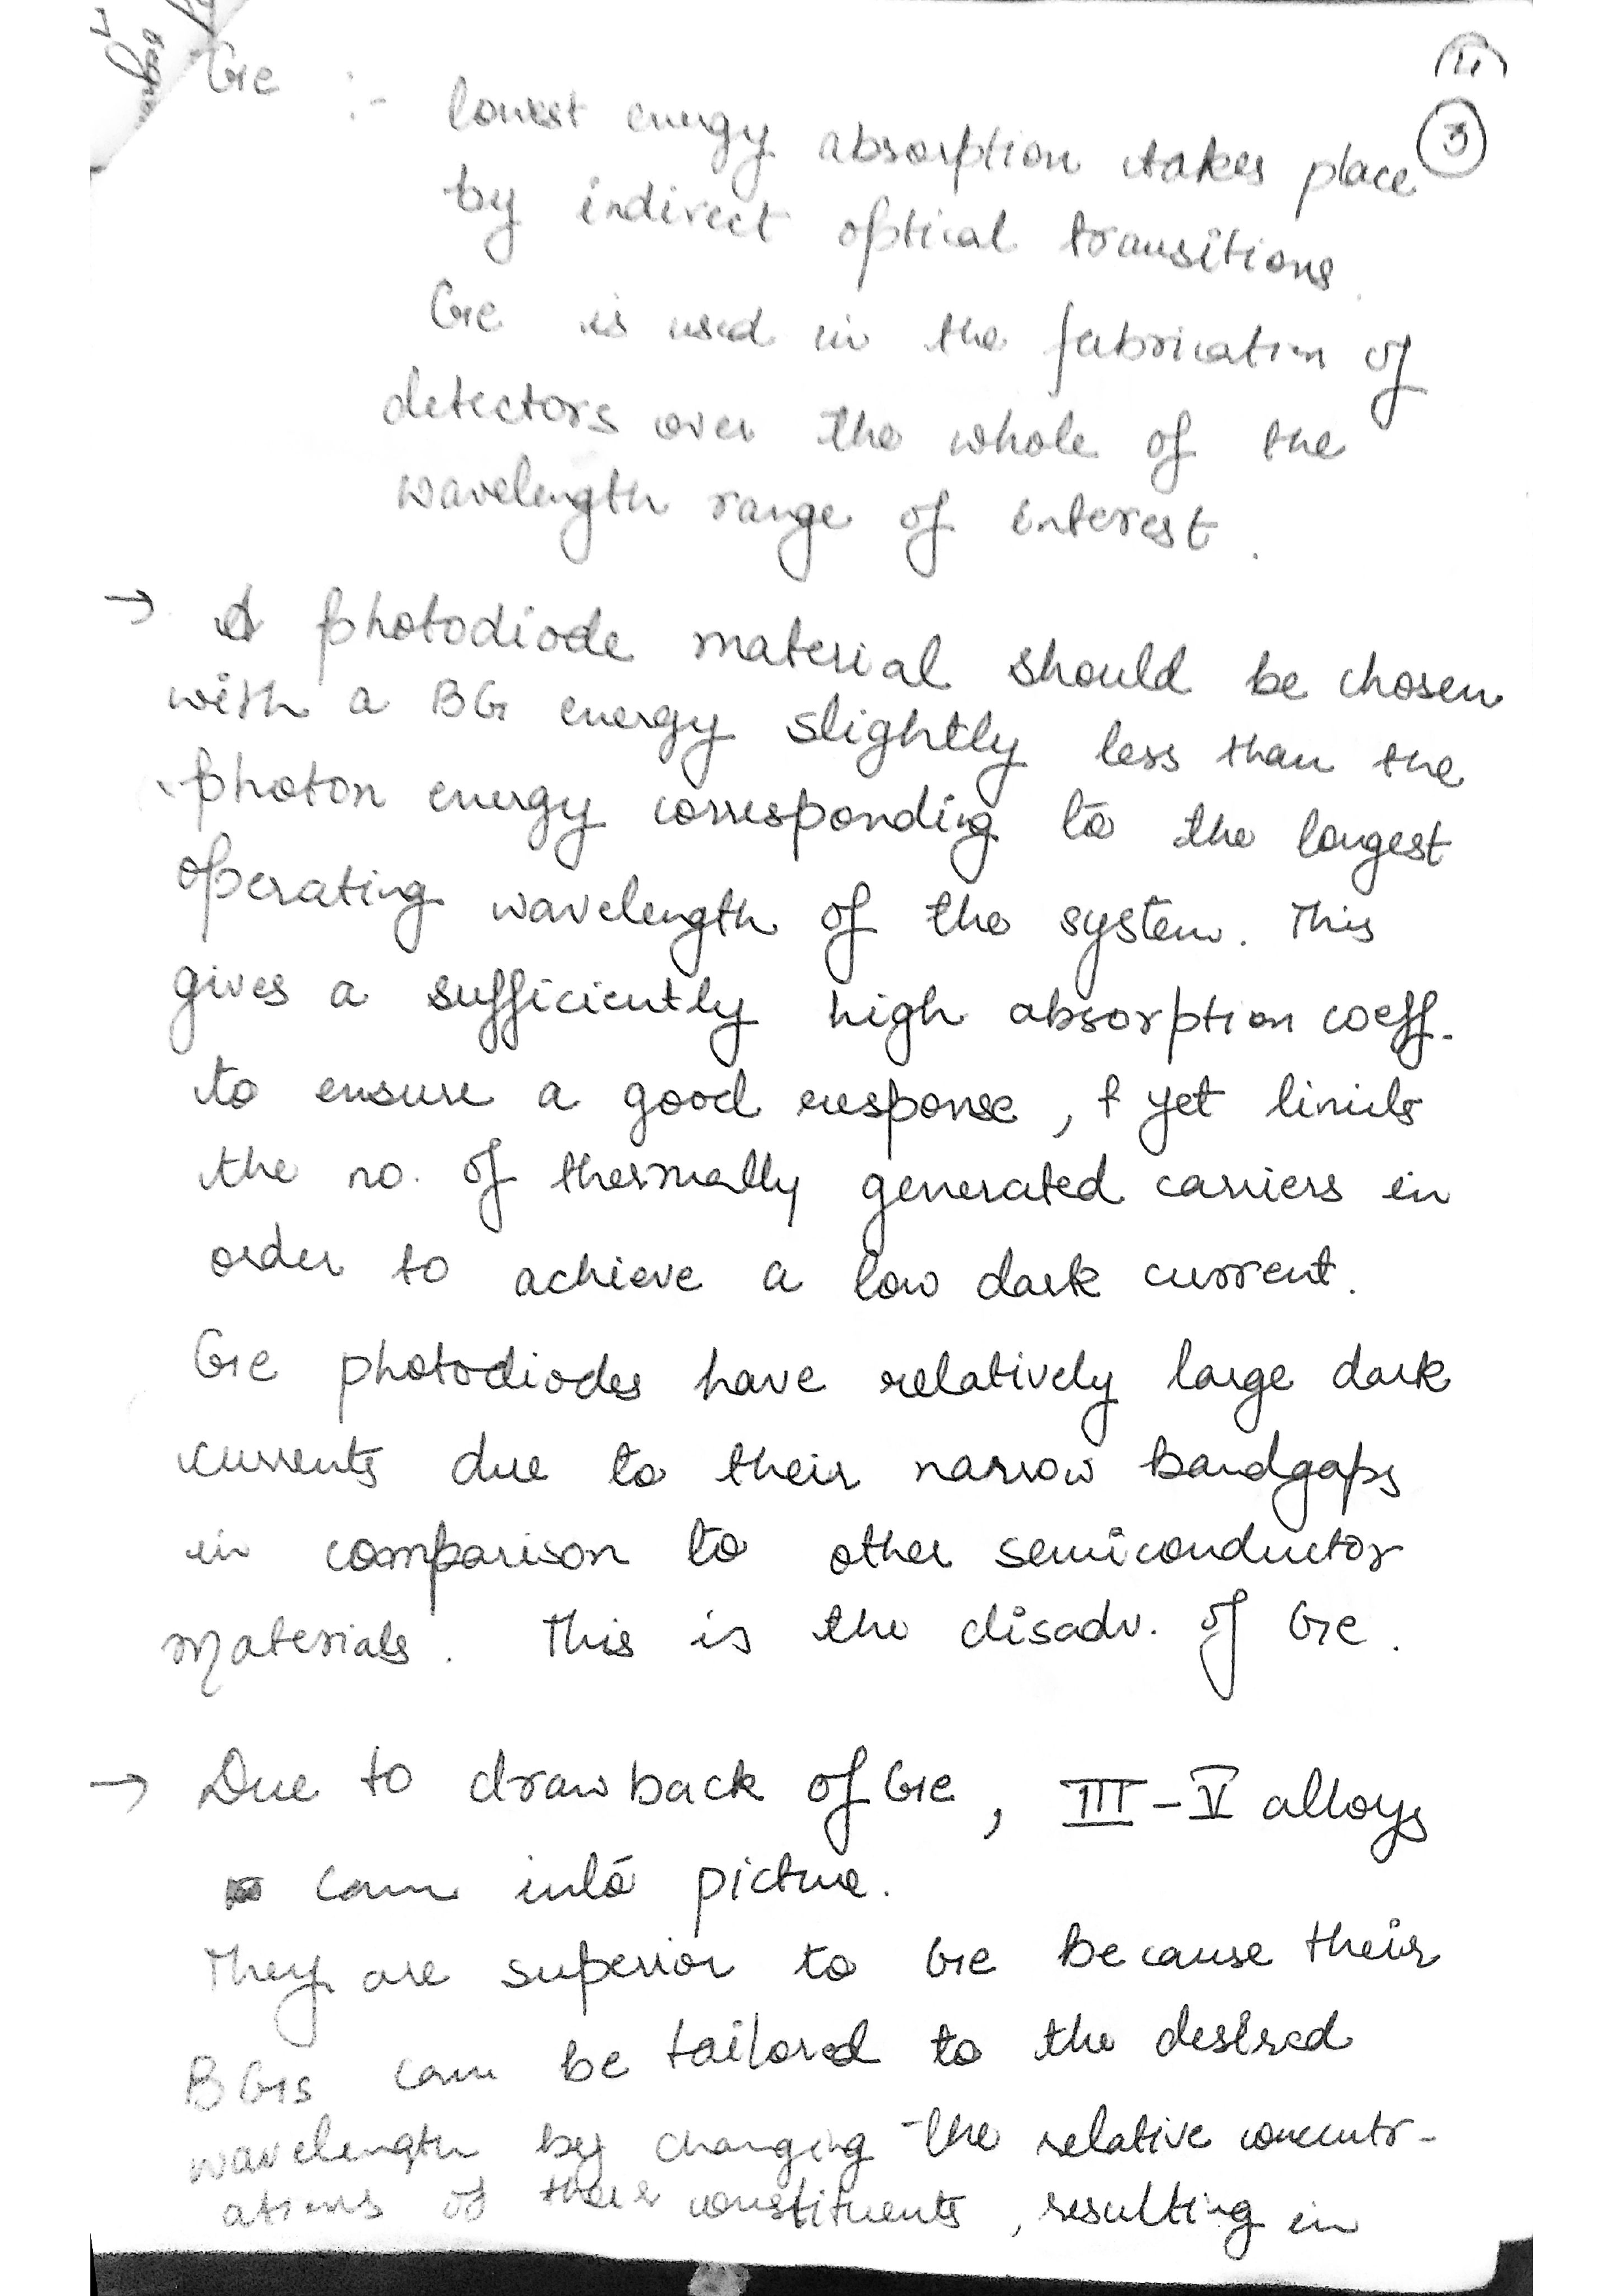 Ge :- lowest energy absorption takes place
③
by indirect optical transitions.
Ge is used in the fabrication of
detectors over the whole of the
wavelength range of interest.
→ A photodiode material should be chosen
with a BG energy slightly less than the
photon energy corresponding to the longest
operating wavelength of the system. This
gives a sufficiently high absorption coeff.
to ensure a good response, & yet limits
the no. of thermally generated carriers in
order to achieve a low dark current.
Ge photodiodes have relatively large dark
currents due to their narrow bandgaps
in comparison to other semiconductor
materials. This is the disadv. of Ge.
→ Due to drawback of Ge, III-V alloys
came into picture.
They are superior to Ge because their
BGs can be tailored to the desired
wavelength by changing the relative concentr-
ations of their constituents, resulting in